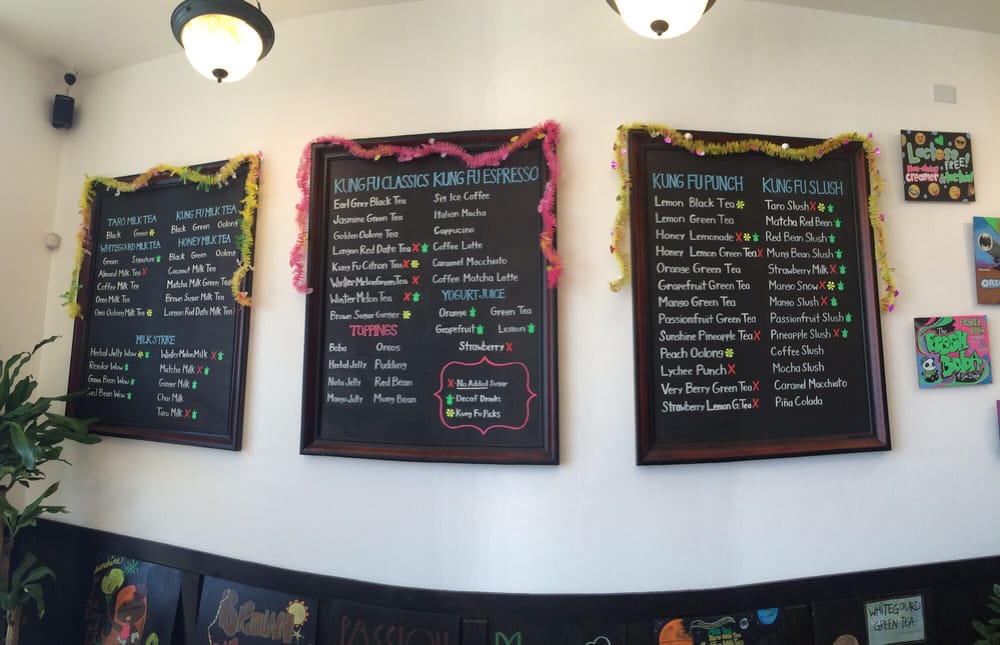 TARO MILK TEA
Black Green
WHITEGOURD MILKTEA
Green Signature
Almond Milk Tea X
Coffee Milk Tea
Oreo Milk Tea
Oreo Oolong Milk Tea
KUNG FU MILK TEA
Black Green Oolong
HONEY MILK TEA
Black Green Oolong
Coconut Milk Tea
Matcha Milk Green Tea
Brown Sugar Milk Tea
Longan Red Date Milk Tea
MILK STRIKE
Herbal Jelly Wow
Regular Wow
Green Bean Wow
Red Bean Wow
WinterMelon Milk X
Matcha Milk X
Ginger Milk
Chai Milk
Taro Milk X
KUNG FU CLASSICS
Earl Grey Black Tea
Jasmine Green Tea
Golden Oolong Tea
Longan Red Date Tea X
Kung Fu Citron Tea X
WinterMelon Green Tea X
WinterMelon Tea X
Brown Sugar Ginger
TOPPINGS
Boba Oreos
Herbal Jelly Pudding
Nata Jelly Red Bean
Mango Jelly Mung Bean
KUNG FU ESPRESSO
Sig Ice Coffee
Italian Mocha
Cappucino
Coffee Latte
Caramel Macchiato
Coffee Matcha Latte
YOGURT JUICE
Orange Green Tea
Grapefruit Lemon
Strawberry X
X - No Added Sugar
Decaf Drinks
Kung Fu Picks
KUNG FU PUNCH
Lemon Black Tea
Lemon Green Tea
Honey Lemonade X
Honey Lemon Green Tea X
Orange Green Tea
Grapefruit Green Tea
Mango Green Tea
Passionfruit Green Tea
Sunshine Pineapple Tea X
Peach Oolong
Lychee Punch X
Very Berry Green Tea X
Strawberry Lemon G. Tea X
KUNG FU SLUSH
Taro Slush X
Matcha Red Bean
Red Bean Slush
Mung Bean Slush
Strawberry Milk X
Mango Snow X
Mango Slush X
Passionfruit Slush
Pineapple Slush X
Coffee Slush
Mocha Slush
Caramel Macchiato
Piña Colada
Lactose
FREE!
non-dairy
creamer
The
FRESH
Boba
sunshine
BROWN
PASSION
Milk Tea
Taro Milk Tea
WHITEGOURD
GREEN TEA